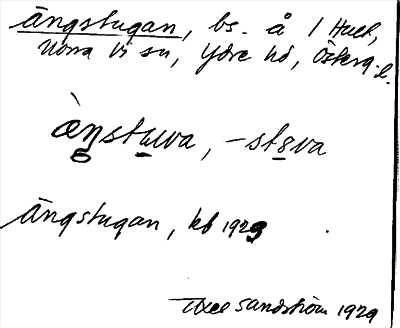 ängstugan, bs. å 1 Hult,
Norra Vi sn, Ydre hd, Österg. l.
ä̀ŋstu̲va, -st8̲va
Ängstugan, kb 1929
Axel Sandström 1929